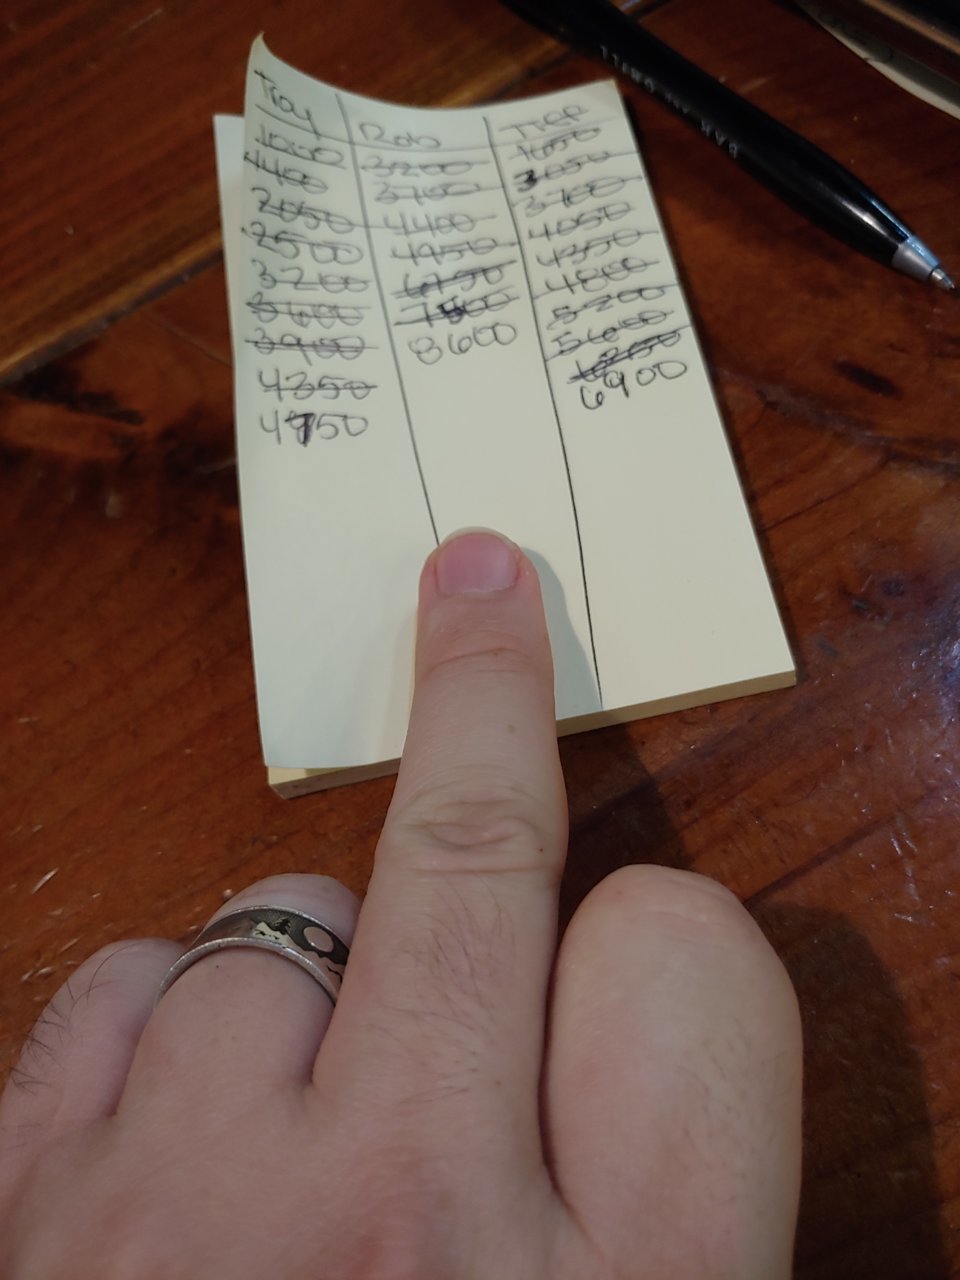 Troy Rob Tiff
1000 3200 1050
1400 3700 3050
2050 4400 3700
2500 4950 4050
3200 6750 4350
3600 4800
3900 8600 5200
4350 5600
4950 6900